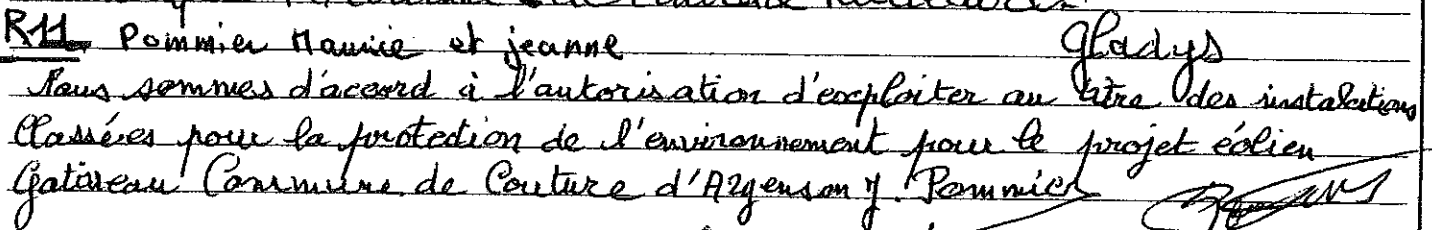 R11 Pommier Maurie et jeanne Gladys
Nous sommes d'accord à l'autorisation d'exploiter au titre des instalations
Classées pour la protection de l'environnement pour le projet éolien
Gatineau Commune de Couture d'Argenson J. Pommier